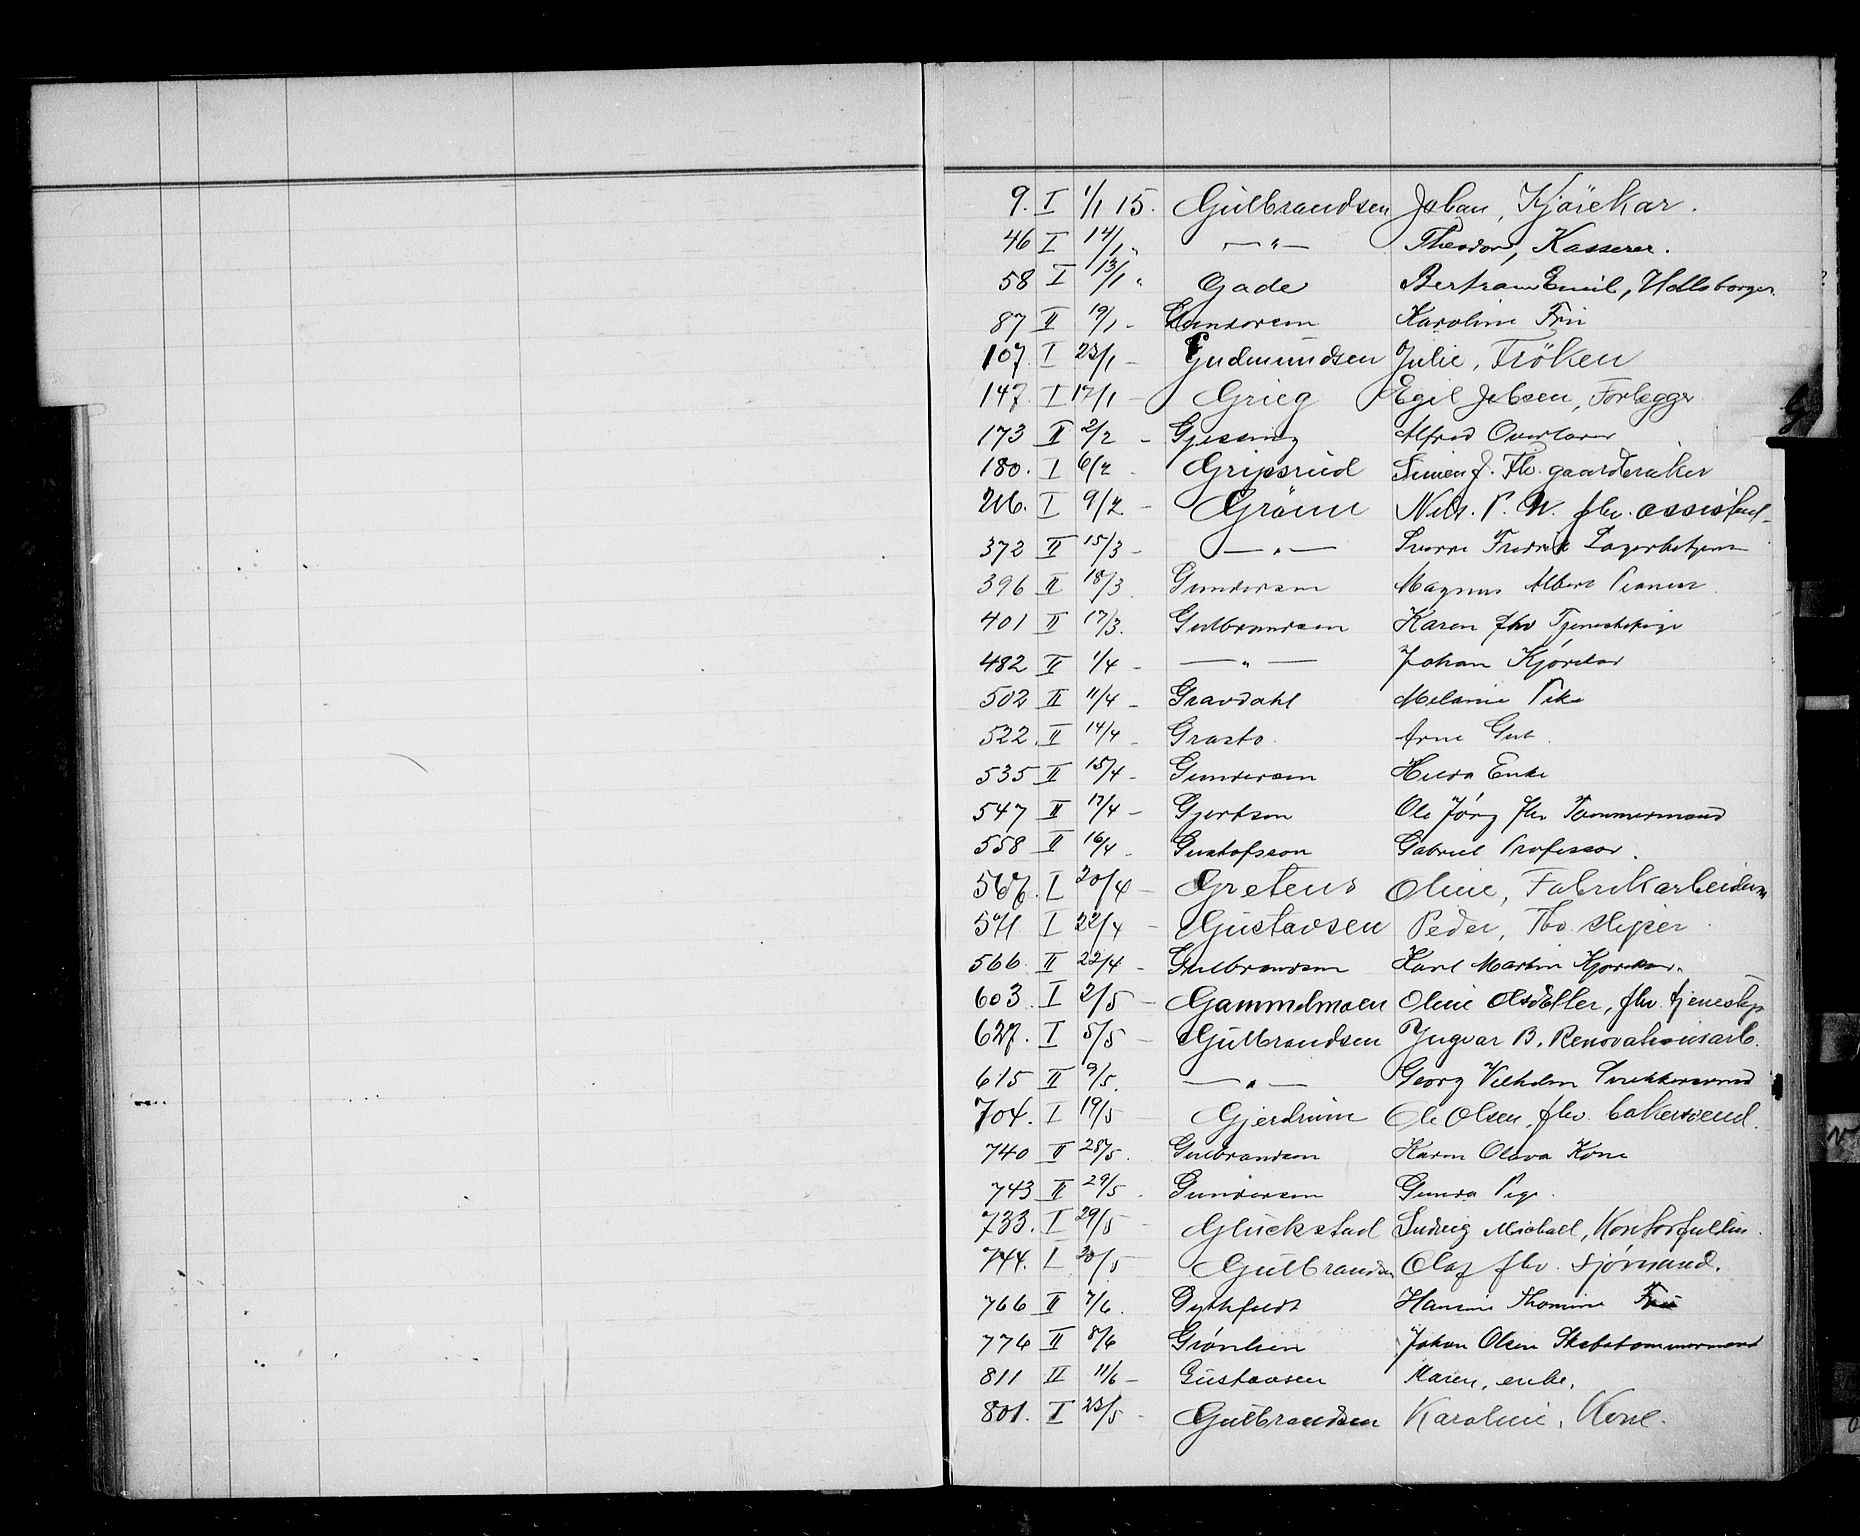 9. I 1/1 15. Gulbrandsen Johan, Kjörekar.
46 I 14/1 " —"— Theodor, Kasserer.
58 I 13/1 " Gade Bertram Emil, Holsborger
87 II 19/1 - Gundersen Karoline Fru
107. I 23/1 - Gudmundsen Julie, Fröken
147. I 17/1 - Grieg Egil Jebsen, Forlegger
173 II 2/2 - Gjessing Alfred Overlærer
180. I 6/2 - Gripsrud Simen J. Fhv. gaardbruker
216. I 9/2 - Grönn Nils. P. W. fhv. assistent
372 II 15/3 - —"— Sverre Fredrik Lagerbetjent
396 II 18/3 Gundersen Magnus Albert
401 II 17/3. Gulbrandsen Karen fhv Tjenestepige
482 II 1/4 - —"— Johan Kjørekar
502 II 11/4 - Gravdahl Melanie Pike
522. II 14/4 - Grasto Arne Gut
535 II 15/4 - Gundersen Hilda Enke
547 II 17/4 - Gjertsen Ole Jörg fhv Tømmermand
558 II 16/4 - Gustafsson Gabriel Professor.
567. I 20/4 - Gretens Oline, Fabrikarbeiderske
571 I 22/4 - Gustavsen Peder, Fhv. sliper
566 II 22/4 - Gulbrandsen Karl Martin Kjørekar.
603. I 2/5 - Gammelmoen Oline Olsdatter, fhv. tjenestep
627. I 5/5 - Gulbrandsen Yngvar B. Renovationsarb.
615 II 9/5. —"— Georg Vilhelm Snekkersvend
704. I 19/5 Gjerdrum Ole Olsen, fhv. bakersvend.
740 II 28/5. Gulbrandsen Karen Olava Kone
743 II 29/5. Gundersen Gunda Pige.
733. I 29/5 - Gluckstad Ludvig Michael, Kontorfuldm.
744. I 20/5 Gulbrandsen Olaf fhv. sjømand.
766 II 7/6. Gythfeldt Hansine Thomine Fru
776 II 8/6 Grønlien Johan Olsen Skibstømmermand
811 II 11/6 - Gustavsen Maren, enke.
801. I 23/5 - Gulbrandsen Karoline, Kone.